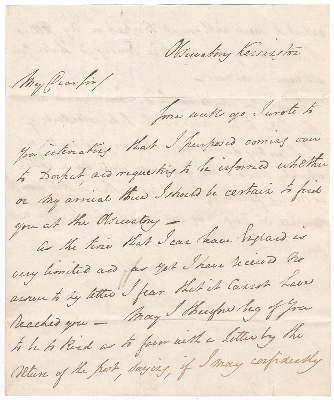 Observatory Kensington
My Dear Sir/
Some weeks ago I wrote to
you intimating that I purposed coming over
to Dorpat, and requesting to be informed whether
on my arrival there I should be certain to find
you at the Observatory —
As the time that I can leave England is
very limited and as yet I have received no
answer to my letter I fear that it cannot have
reached you — May I therefore beg of you
to be so kind as to favor with a letter by the
return of the post, saying, if I may confidently